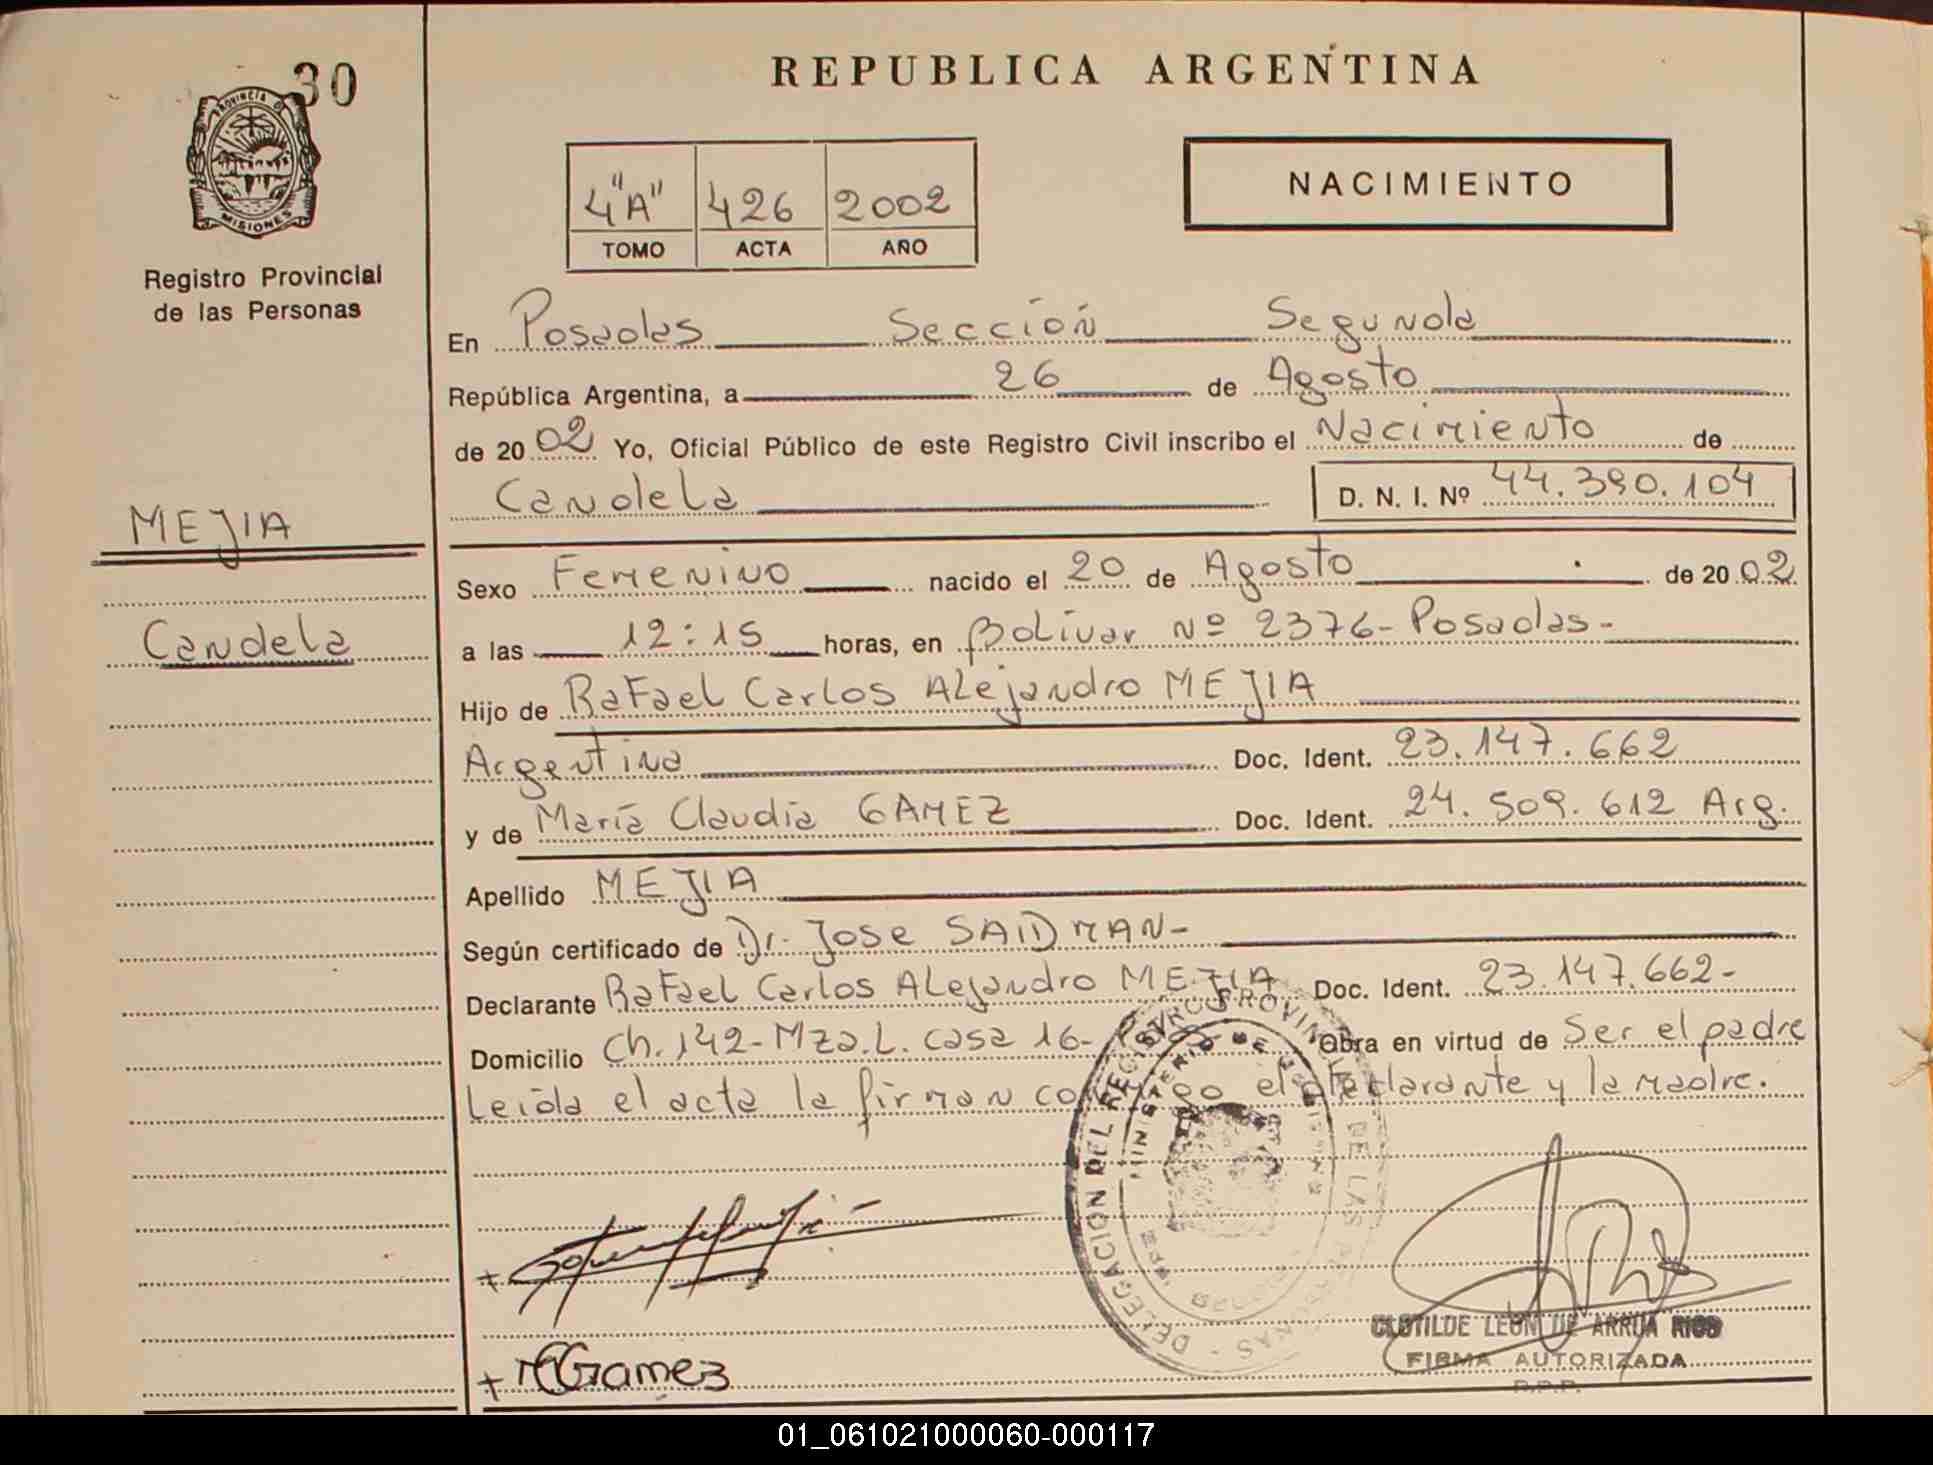 30
PROVINCIA DE
MISIONES
Registro Provincial
de las Personas
MEJIA
Candela
REPUBLICA ARGENTINA
4"A" 426 2002
TOMO ACTA AÑO
NACIMIENTO
En Posadas Sección Segunda
República Argentina, a 26 de Agosto
de 2002 Yo, Oficial Público de este Registro Civil inscribo el Nacimiento de
Candela D. N. I. Nº 44.390.104
Sexo Femenino nacido el 20 de Agosto de 2002
a las 12:15 horas, en Bolívar Nº 2376- Posadas-
Hijo de Rafael Carlos Alejandro MEJIA
Argentina Doc. Ident. 23.147.662
y de María Claudia GAMEZ Doc. Ident. 24.509.612 Arg.
Apellido MEJIA
Según certificado de Dr. Jose SAIDMAN-
Declarante Rafael Carlos Alejandro MEJIA Doc. Ident. 23.147.662-
Domicilio Ch. 142- Mza. L. casa 16- Obra en virtud de Ser el padre
Leida el acta la firman conmigo el declarante y la madre.
DELEGACION DEL REGISTRO PROVINCIAL DE LAS PERSONAS
MINISTERIO DE
MCGamez
CLOTILDE LEON DE ARRUA RIOS
FIRMA AUTORIZADA
R.P.P.
01_061021000060-000117